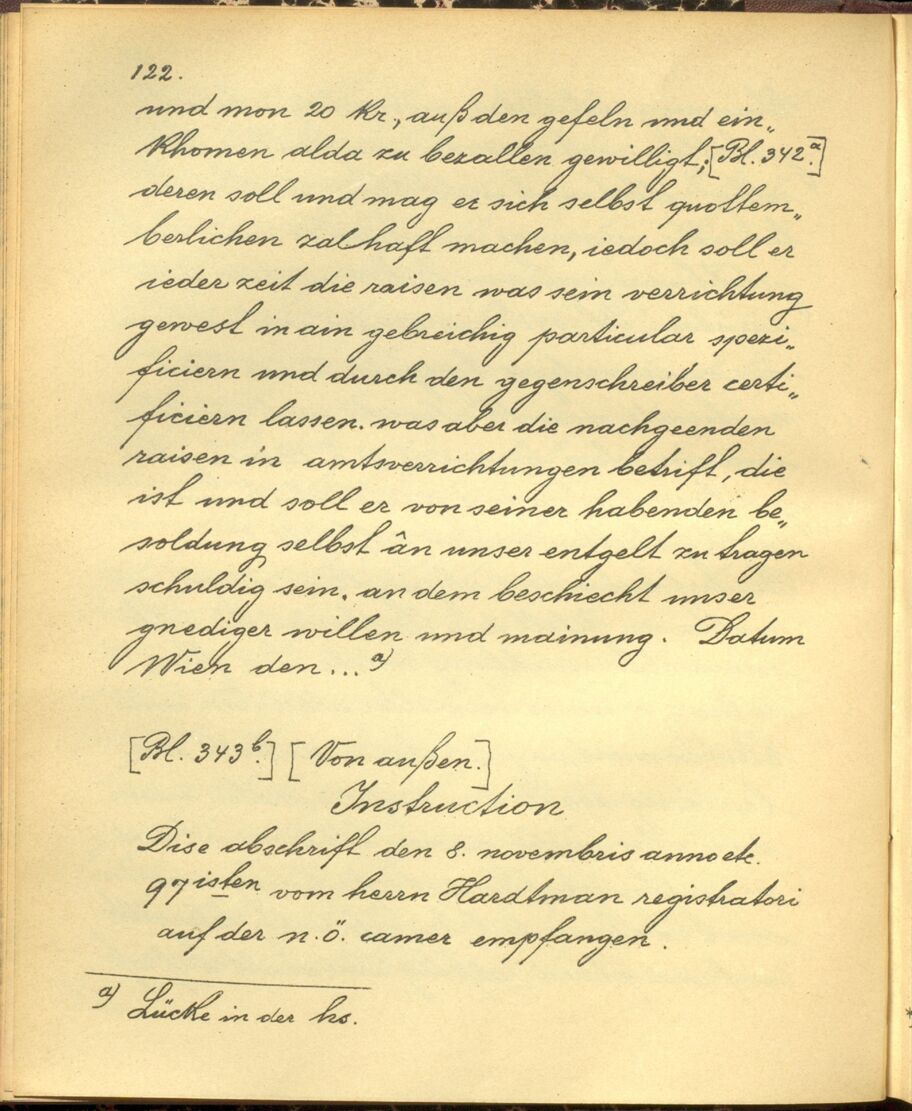 122.
und mon 20 kr., auß den gefeln und ein„
khomen alda zu bezallen gewilligt; [Bl. 342.a]
deren soll und mag er sich selbst quottem„
berlichen zalhaft machen, iedoch soll er
ieder zeit die raisen was sein verrichtung
gewest in ain gebreichig particular spezi„
ficiern und durch den gegenschreiber certi„
ficiern lassen. was aber die nachgeenden
raisen in amtsverrichtungen betrift, die
ist und soll er von seiner habenden be„
soldung selbst ân unser entgelt zu tragen
schuldig sein. an dem beschiecht unser
gnediger willen und mainung. Datum
Wien den ... a)
[Bl. 343b.] [Von außen.]
Instruction
Dise abschrift den 8. novembris anno etc.
97isten vom herrn Hardtman registratori
auf der n.ö. camer empfangen.
a) Lücke in der hs.